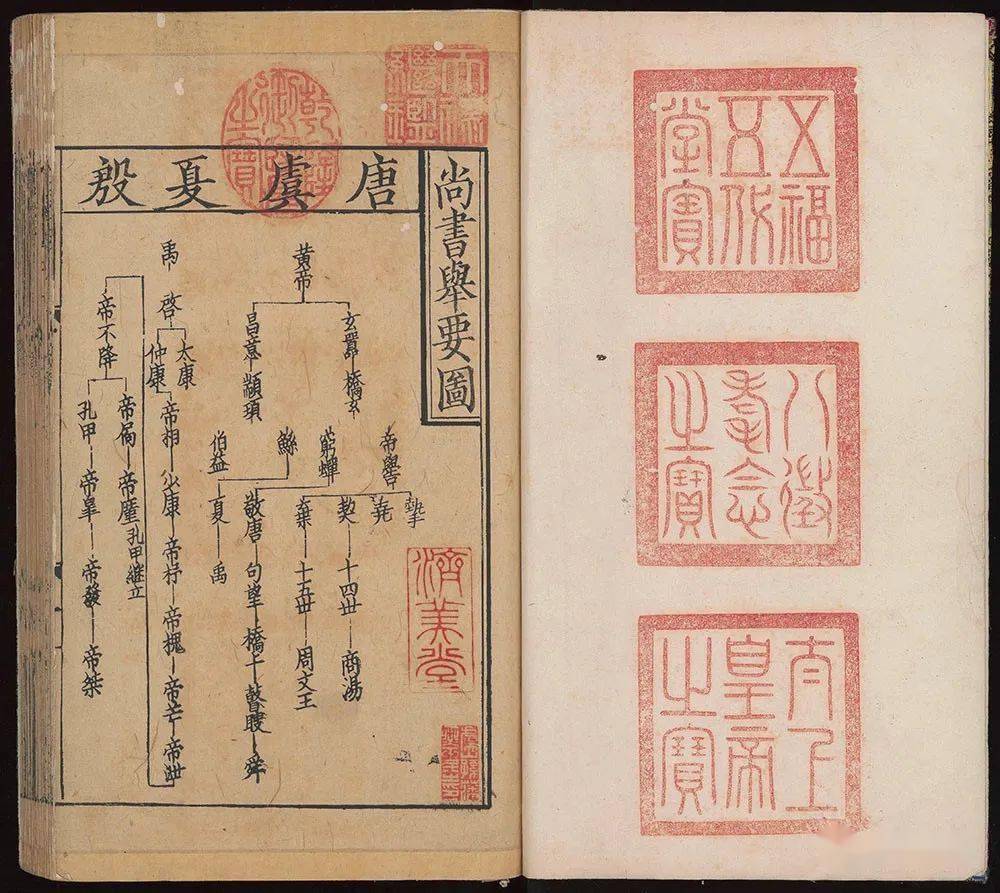 五福五代堂寶
八徵耄念之寶
太上皇帝之寶
天祿繼鑑
乾隆御覽之寶
尚書舉要圖
唐虞夏殷
黄帝
玄囂 橋玄
昌意 顓頊
帝嚳
摯
堯
契 十四世 商湯
棄 十五世 周文王
窮蟬
敬唐 句望 橋牛 瞽瞍 舜
鯀
伯益
夏 禹
禹
啓
太康
仲康
帝相 少康 帝杼 帝槐 帝芒 帝泄
帝不降
帝扃 帝廑 孔甲継立
孔甲 帝皋 帝發 帝桀
濟美堂